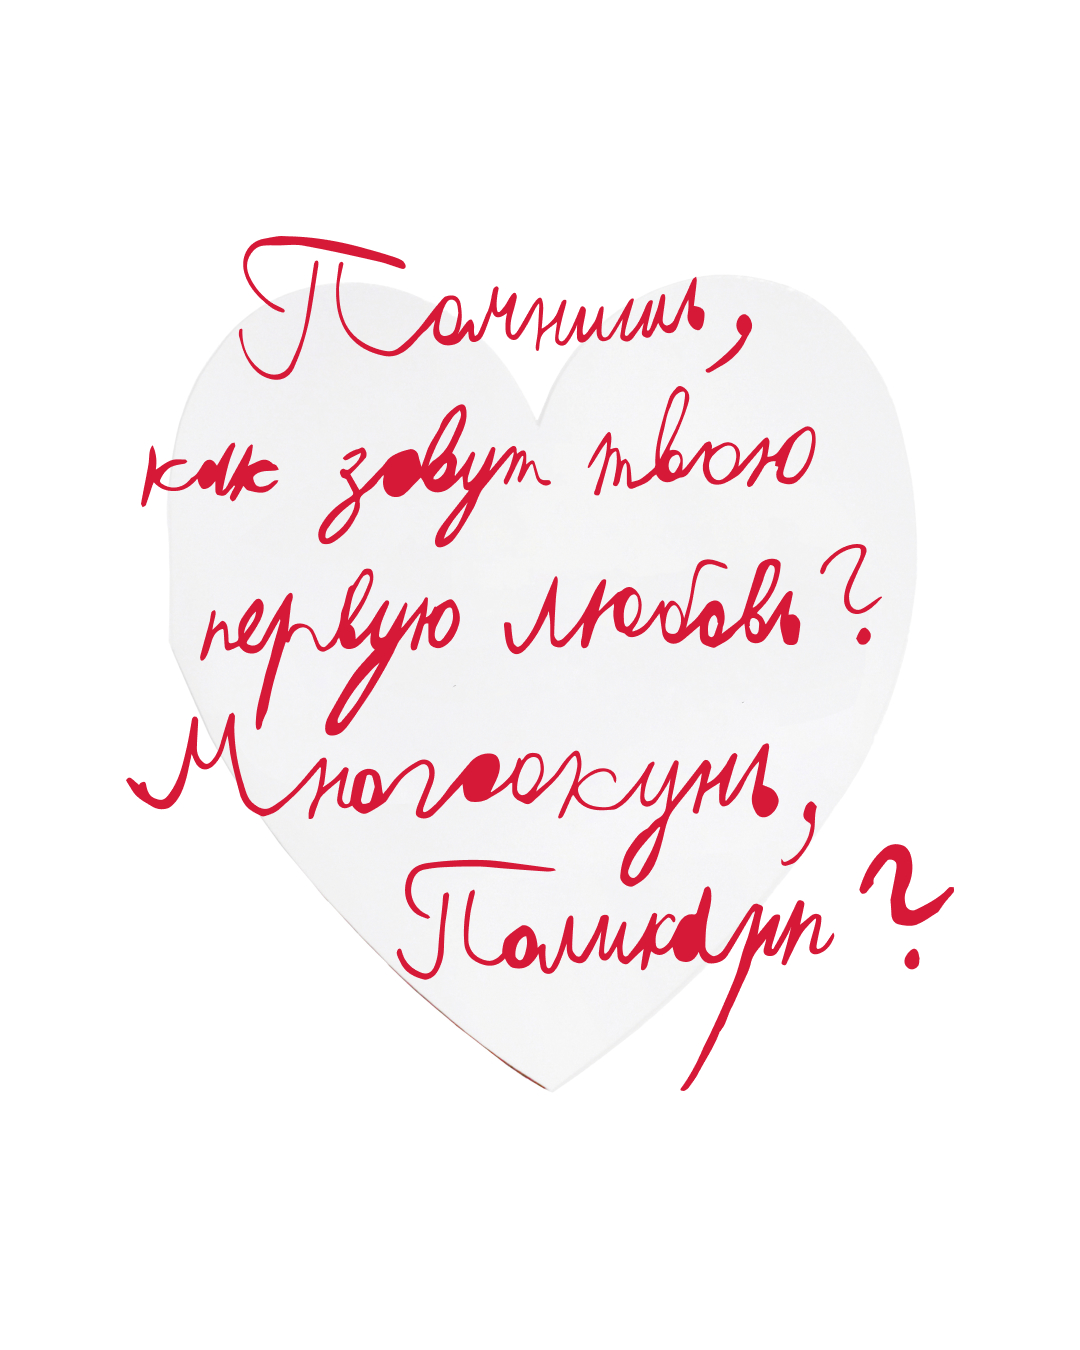 Помнишь,
как зовут твою
первую любовь?
Многоокунь,
Поликарп?